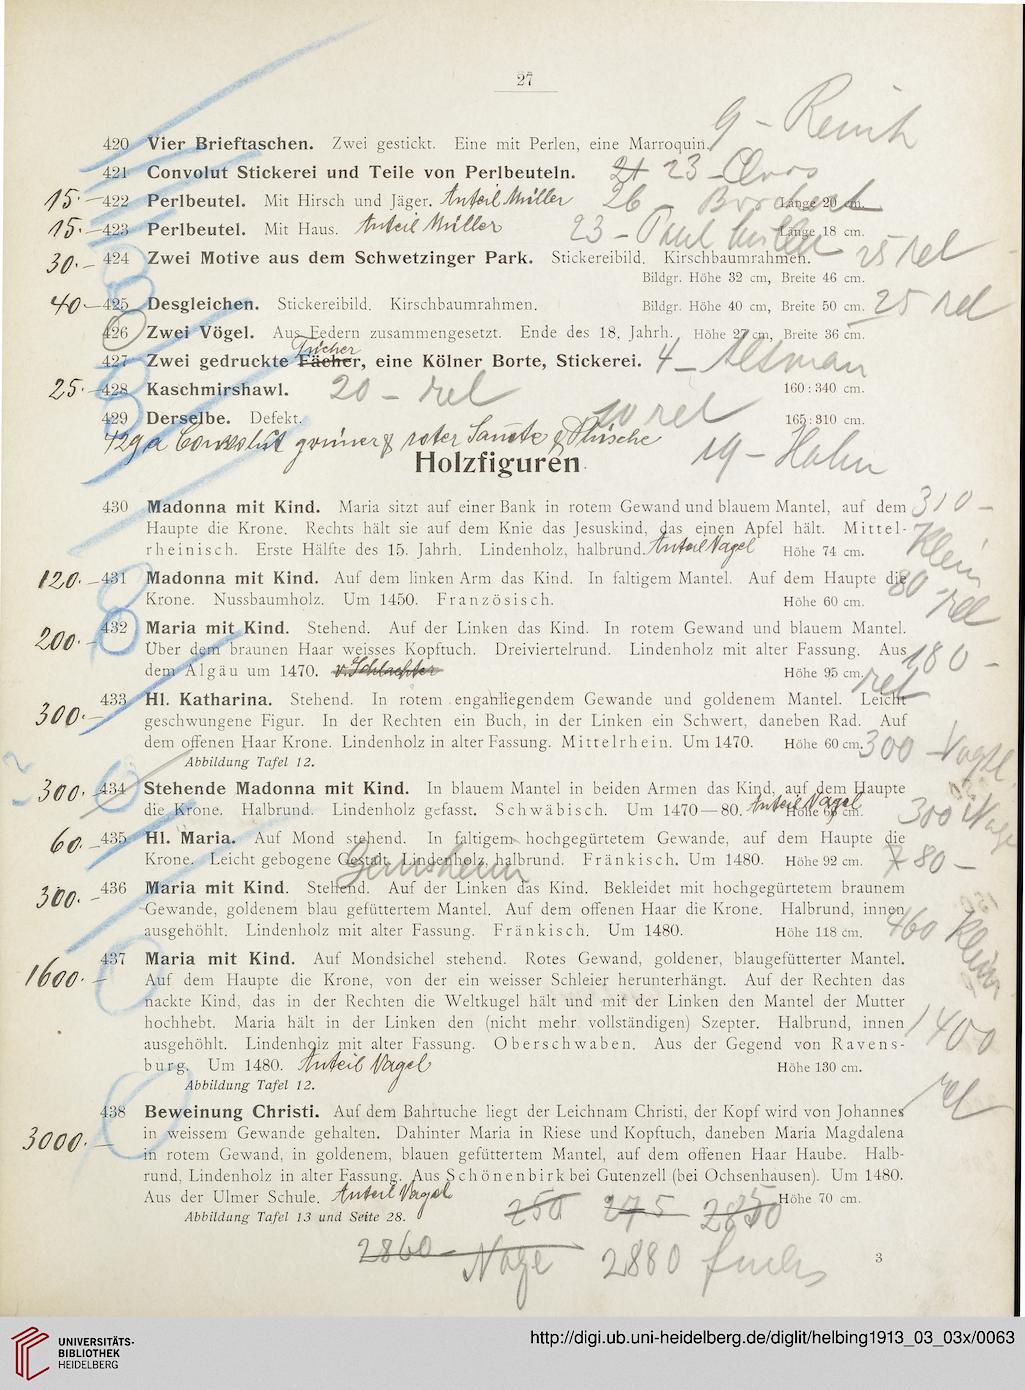 27
9 -
420 Vier Brieftaschen. Zwei gestickt. Eine mit Perlen, eine Marroquin.
421 Convolut Stickerei und Teile von Perlbeuteln. 21 23 -
15.- 422 Perlbeutel. Mit Hirsch und Jäger. Anteil Müller 26 Länge 20 cm.
15.- 423 Perlbeutel. Mit Haus. Anteil Müller 23 - Paul Müller Länge 18 cm.
30.- 424 Zwei Motive aus dem Schwetzinger Park. Stickereibild. Kirschbaumrahmen. 25 rel
Bildgr. Höhe 32 cm, Breite 46 cm.
40- 425 Desgleichen. Stickereibild. Kirschbaumrahmen. Bildgr. Höhe 40 cm, Breite 50 cm. 25 rel
426 Zwei Vögel. Aus Federn zusammengesetzt. Ende des 18. Jahrh. Höhe 27 cm, Breite 36 cm.
Tücher
427 Zwei gedruckte Fächer, eine Kölner Borte, Stickerei. 4 - Altman
25.- 428 Kaschmirshawl. 20 - rel 160 : 340 cm.
429 Derselbe. Defekt. 20 rel 165 : 310 cm.
429a Convolut grüner & roter Samte & Plüsche
19 - Hahn
Holzfiguren
430 Madonna mit Kind. Maria sitzt auf einer Bank in rotem Gewand und blauem Mantel, auf dem 310 -
Haupte die Krone. Rechts hält sie auf dem Knie das Jesuskind, das einen Apfel hält. Mittel- Klein
rheinisch. Erste Hälfte des 15. Jahrh. Lindenholz, halbrund. Anteil Nagel Höhe 74 cm.
120.- 431 Madonna mit Kind. Auf dem linken Arm das Kind. In faltigem Mantel. Auf dem Haupte die 80 - rel
Krone. Nussbaumholz. Um 1450. Französisch. Höhe 60 cm.
200.- 432 Maria mit Kind. Stehend. Auf der Linken das Kind. In rotem Gewand und blauem Mantel.
Über dem braunen Haar weisses Kopftuch. Dreiviertelrund. Lindenholz mit alter Fassung. Aus 180 -
dem Algäu um 1470. v. Schlachter Höhe 95 cm. rel
300.- 433 Hl. Katharina. Stehend. In rotem enganliegendem Gewande und goldenem Mantel. Leicht
geschwungene Figur. In der Rechten ein Buch, in der Linken ein Schwert, daneben Rad. Auf
dem offenen Haar Krone. Lindenholz in alter Fassung. Mittelrhein. Um 1470. Höhe 60 cm. 300 - Nagel
Abbildung Tafel 12.
300.- 434 Stehende Madonna mit Kind. In blauem Mantel in beiden Armen das Kind, auf dem Haupte
die Krone. Halbrund. Lindenholz gefasst. Schwäbisch. Um 1470—80. Anteil Nagel Höhe 66 cm. 300
60.- 435 Hl. Maria. Auf Mond stehend. In faltigem hochgegürtetem Gewande, auf dem Haupte die
Krone. Leicht gebogene Gestalt. Lindenholz, halbrund. Fränkisch. Um 1480. Höhe 92 cm. 80 -
Gernsheim
300.- 436 Maria mit Kind. Stehend. Auf der Linken das Kind. Bekleidet mit hochgegürtetem braunem
Gewande, goldenem blau gefüttertem Mantel. Auf dem offenen Haar die Krone. Halbrund, innen
ausgehöhlt. Lindenholz mit alter Fassung. Fränkisch. Um 1480. Höhe 118 cm. 460 Klein
1600.- 437 Maria mit Kind. Auf Mondsichel stehend. Rotes Gewand, goldener, blaugefütterter Mantel.
Auf dem Haupte die Krone, von der ein weisser Schleier herunterhängt. Auf der Rechten das
nackte Kind, das in der Rechten die Weltkugel hält und mit der Linken den Mantel der Mutter
hochhebt. Maria hält in der Linken den (nicht mehr vollständigen) Szepter. Halbrund, innen 1400
ausgehöhlt. Lindenholz mit alter Fassung. Oberschwaben. Aus der Gegend von Ravens-
burg. Um 1480. Anteil Nagel Höhe 130 cm. rel
Abbildung Tafel 12.
3000.- 438 Beweinung Christi. Auf dem Bahrtuche liegt der Leichnam Christi, der Kopf wird von Johannes
in weissem Gewande gehalten. Dahinter Maria in Riese und Kopftuch, daneben Maria Magdalena
in rotem Gewand, in goldenem, blauen gefüttertem Mantel, auf dem offenen Haar Haube. Halb-
rund, Lindenholz in alter Fassung. Aus Schönenbirk bei Gutenzell (bei Ochsenhausen). Um 1480.
Aus der Ulmer Schule. Anteil Nagel Höhe 70 cm.
Abbildung Tafel 13 und Seite 28. 250 275 2850
2860 - 2880 Fuchs
3
UNIVERSITÄTS-
BIBLIOTHEK
HEIDELBERG
http://digi.ub.uni-heidelberg.de/diglit/helbing1913_03_03x/0063